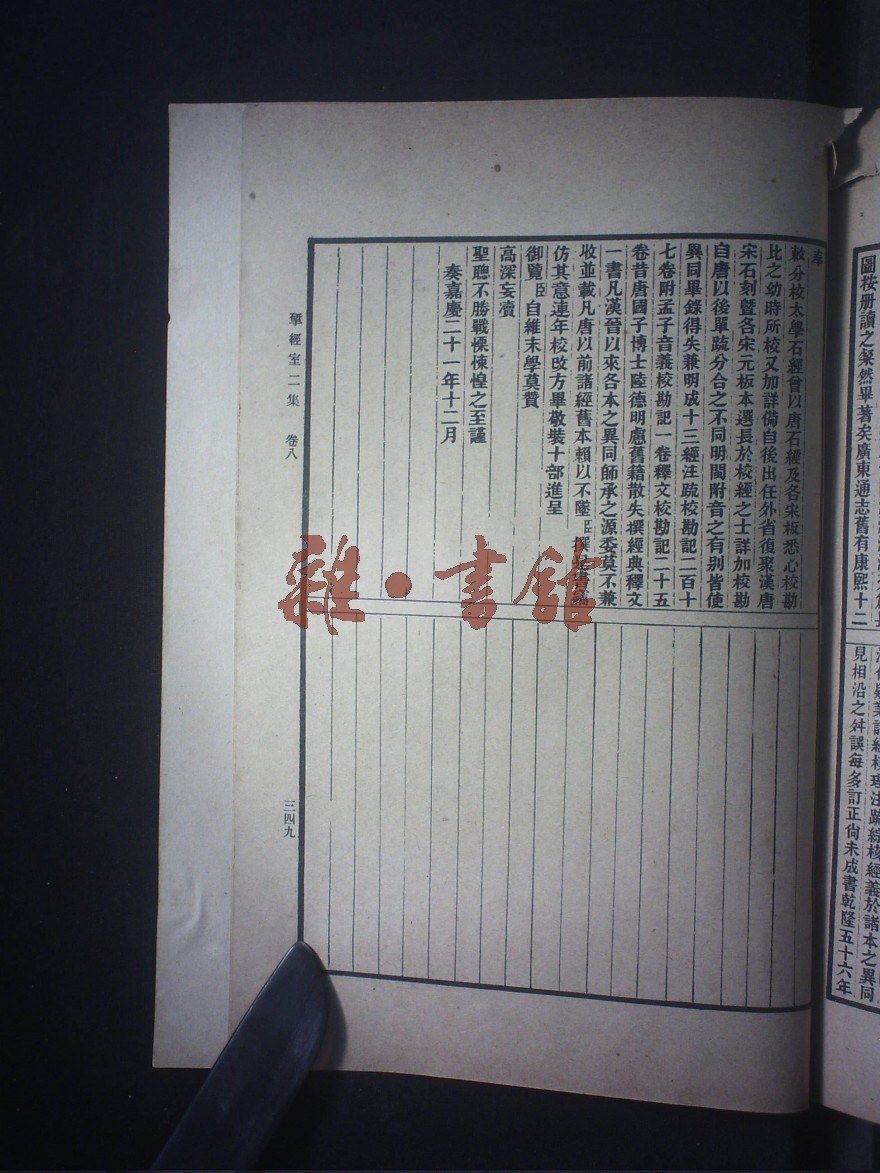 圖按册讀之粲然畢著矣廣東通志舊有康熙十二
見相沿之舛誤每多訂正尙未成書乾隆五十六年
奉
敕分校太學石經曾以唐石經及各宋板悉心校勘
比之幼時所校又加詳備自後出任外省復聚漢唐
宋石刻曁各宋元板本選長於校經之士詳加校勘
自唐以後單疏分合之不同明閩附音之有別皆使
異同畢錄得失兼明成十三經注疏校勘記二百十
七卷附孟子音義校勘記一卷釋文校勘記二十五
卷昔唐國子博士陸德明慮舊籍散失撰經典釋文
一書凡漢晉以來各本之異同師承之源委莫不兼
收並載凡唐以前諸經舊本賴以不墜臣撰是書竊
仿其意連年校改方畢敬裝十部進呈
御覽臣自維末學莫贊
高深妄瀆
聖聰不勝戰慄悚惶之至謹
奏嘉慶二十一年十二月
揅經室二集 卷八
三四九
雜·書館